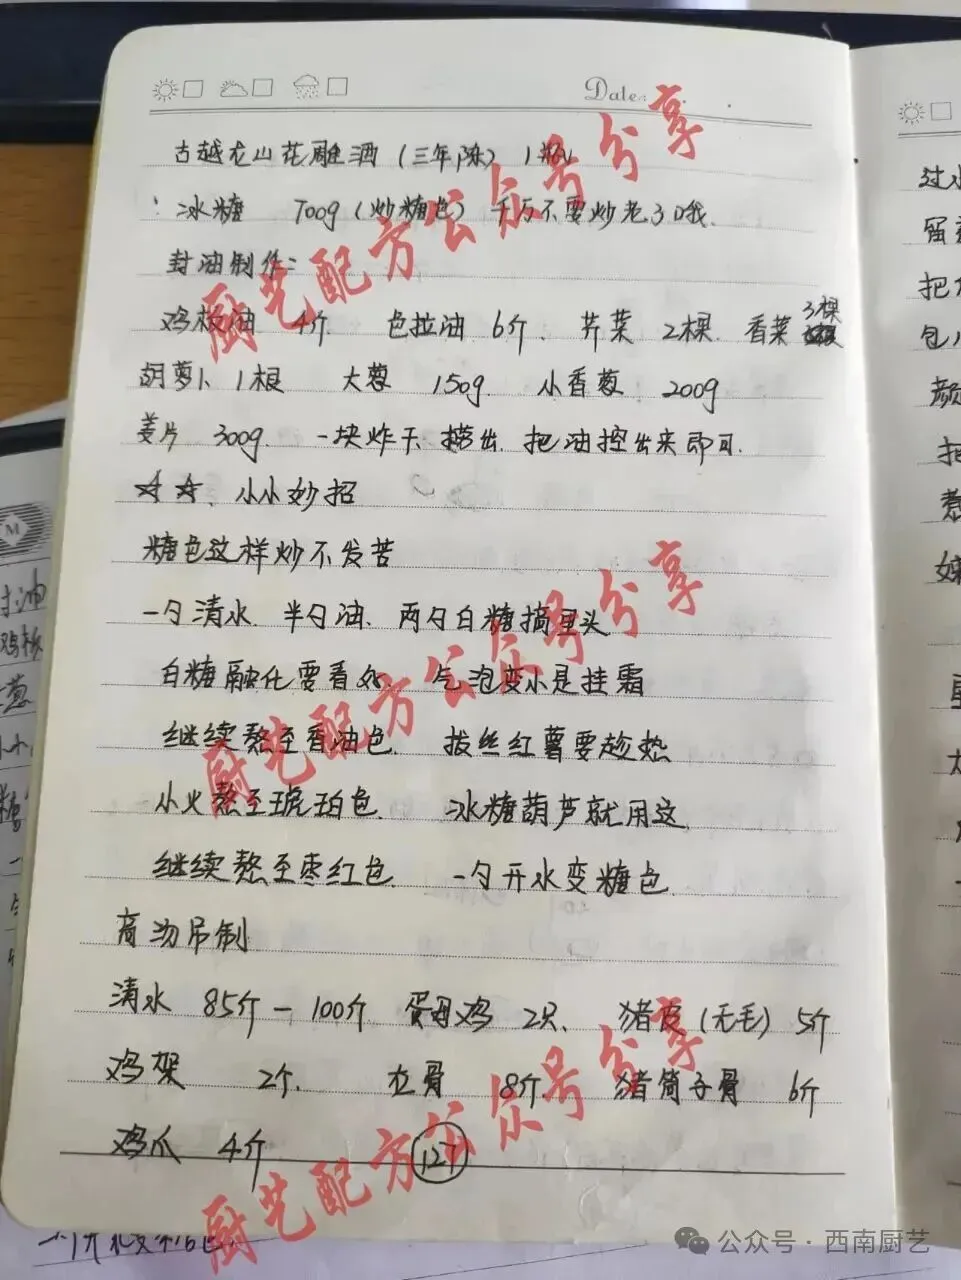 Date
古越龙山花雕酒（三年陈） 1瓶
冰糖 700g（炒糖色） 千万不要炒老了哦.
封油制作:
鸡板油 4斤 色拉油 6斤、 芹菜 2棵. 香菜 3棵
胡萝卜 1根 大葱 150g. 小香葱 200g
姜片 300g. 一块炸干, 捞出, 把油控出来即可.
☆ ☆、小小妙招
糖色这样炒不发苦
一勺清水、半勺油、两勺白糖搞里头
白糖融化要看火. 气泡变小是挂霜
继续熬至香油色. 拔丝红薯要趁热
小火熬至琥珀色. 冰糖葫芦就用这
继续熬至枣红色. 一勺开水变糖色
高汤吊制
清水 85斤 — 100斤 蛋母鸡 2只、 猪皮（无毛）5斤
鸡架 2个. 龙骨 8斤. 猪筒子骨 6斤
鸡爪 4斤
127
厨艺配方公众号分享
厨艺配方公众号分享
厨艺配方公众号分享
过水
把
包
颜
M
封油
鸡板
葱
公众号·西南厨艺